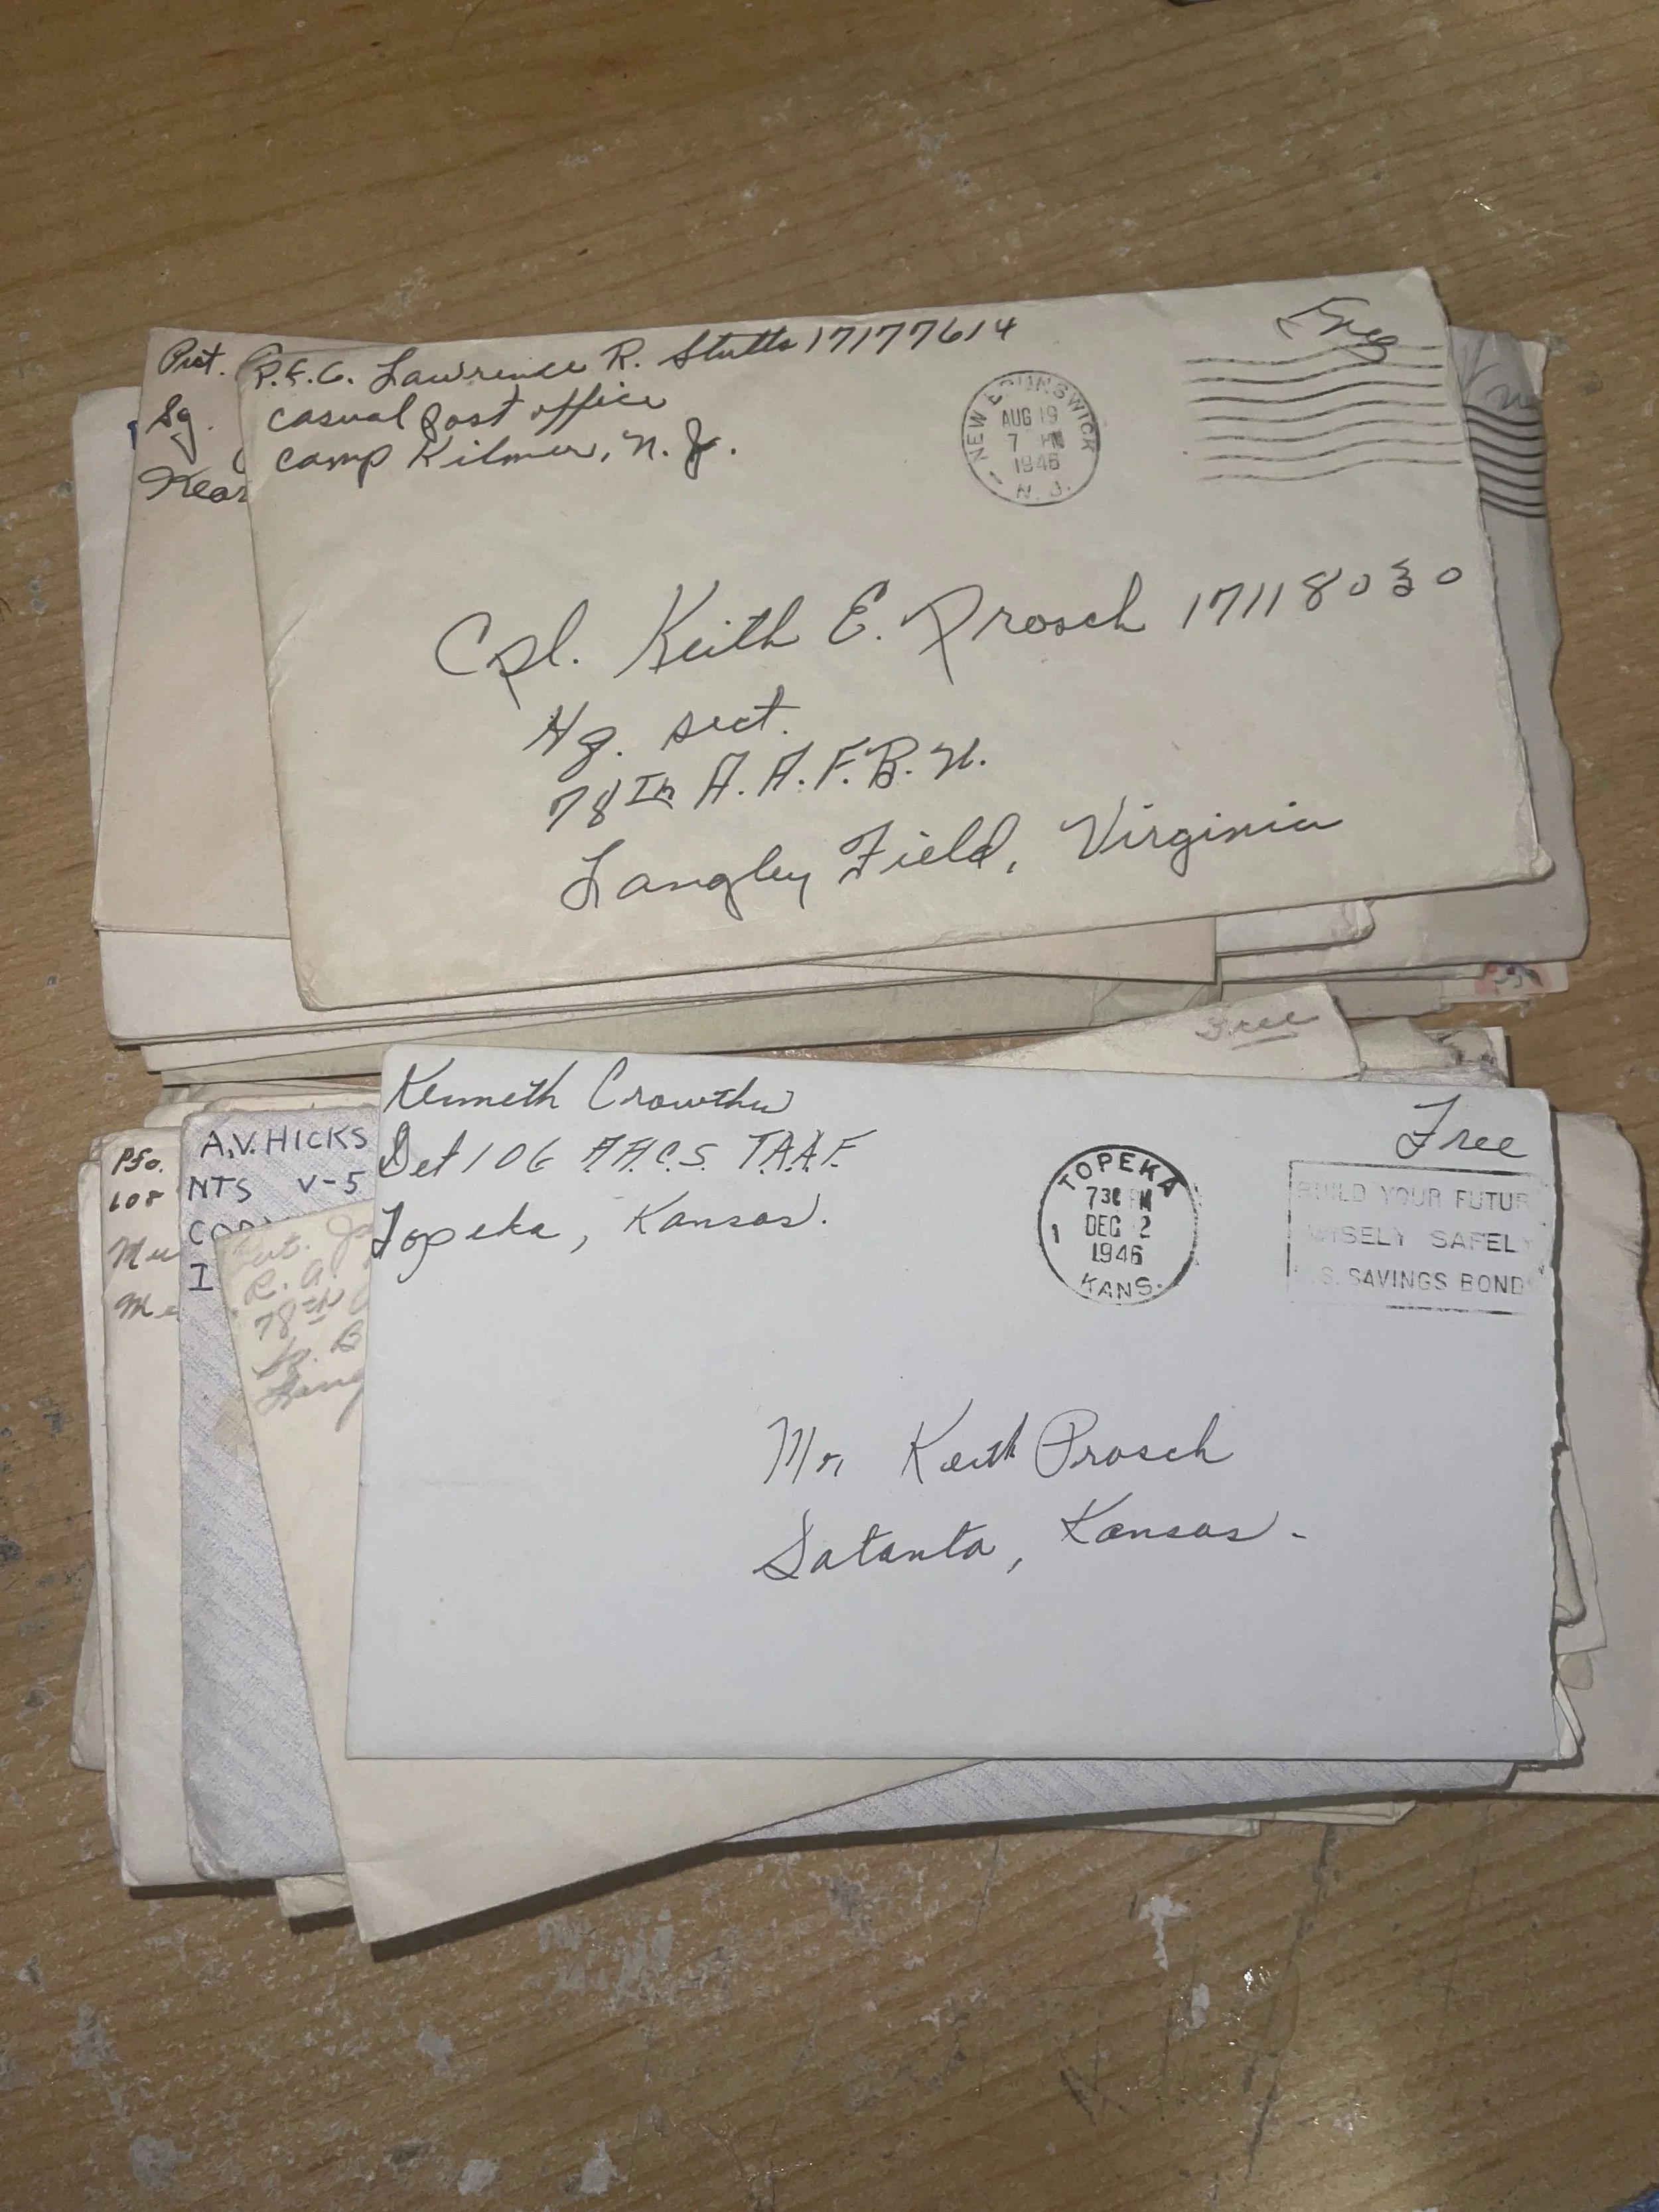 Pvt.
Sq.
P.F.C. Lawrence R. Stutts 17177614
casual post office
camp Kilmer, N. J.
NEW BRUNSWICK
AUG 19
7 PM
1946
N. J.
Free
Cpl. Keith E. Prosch 17118030
Hq. sect.
78th A. A. F. B. U.
Langley Field, Virginia
Free
Kenneth Crowther
Det 106 A.A.C.S. T.A.A.F.
Topeka, Kansas.
TOPEKA
730 PM
DEC 2
1
1946
KANS.
Free
BUILD YOUR FUTUR
WISELY SAFELY
S. SAVINGS BOND
Mr Keith Prosch
Satanta, Kansas-
Pfc.
608
A.V. HICKS
NTS V-5
I
Pvt.
R. A.
78th
Sq. B
Lang